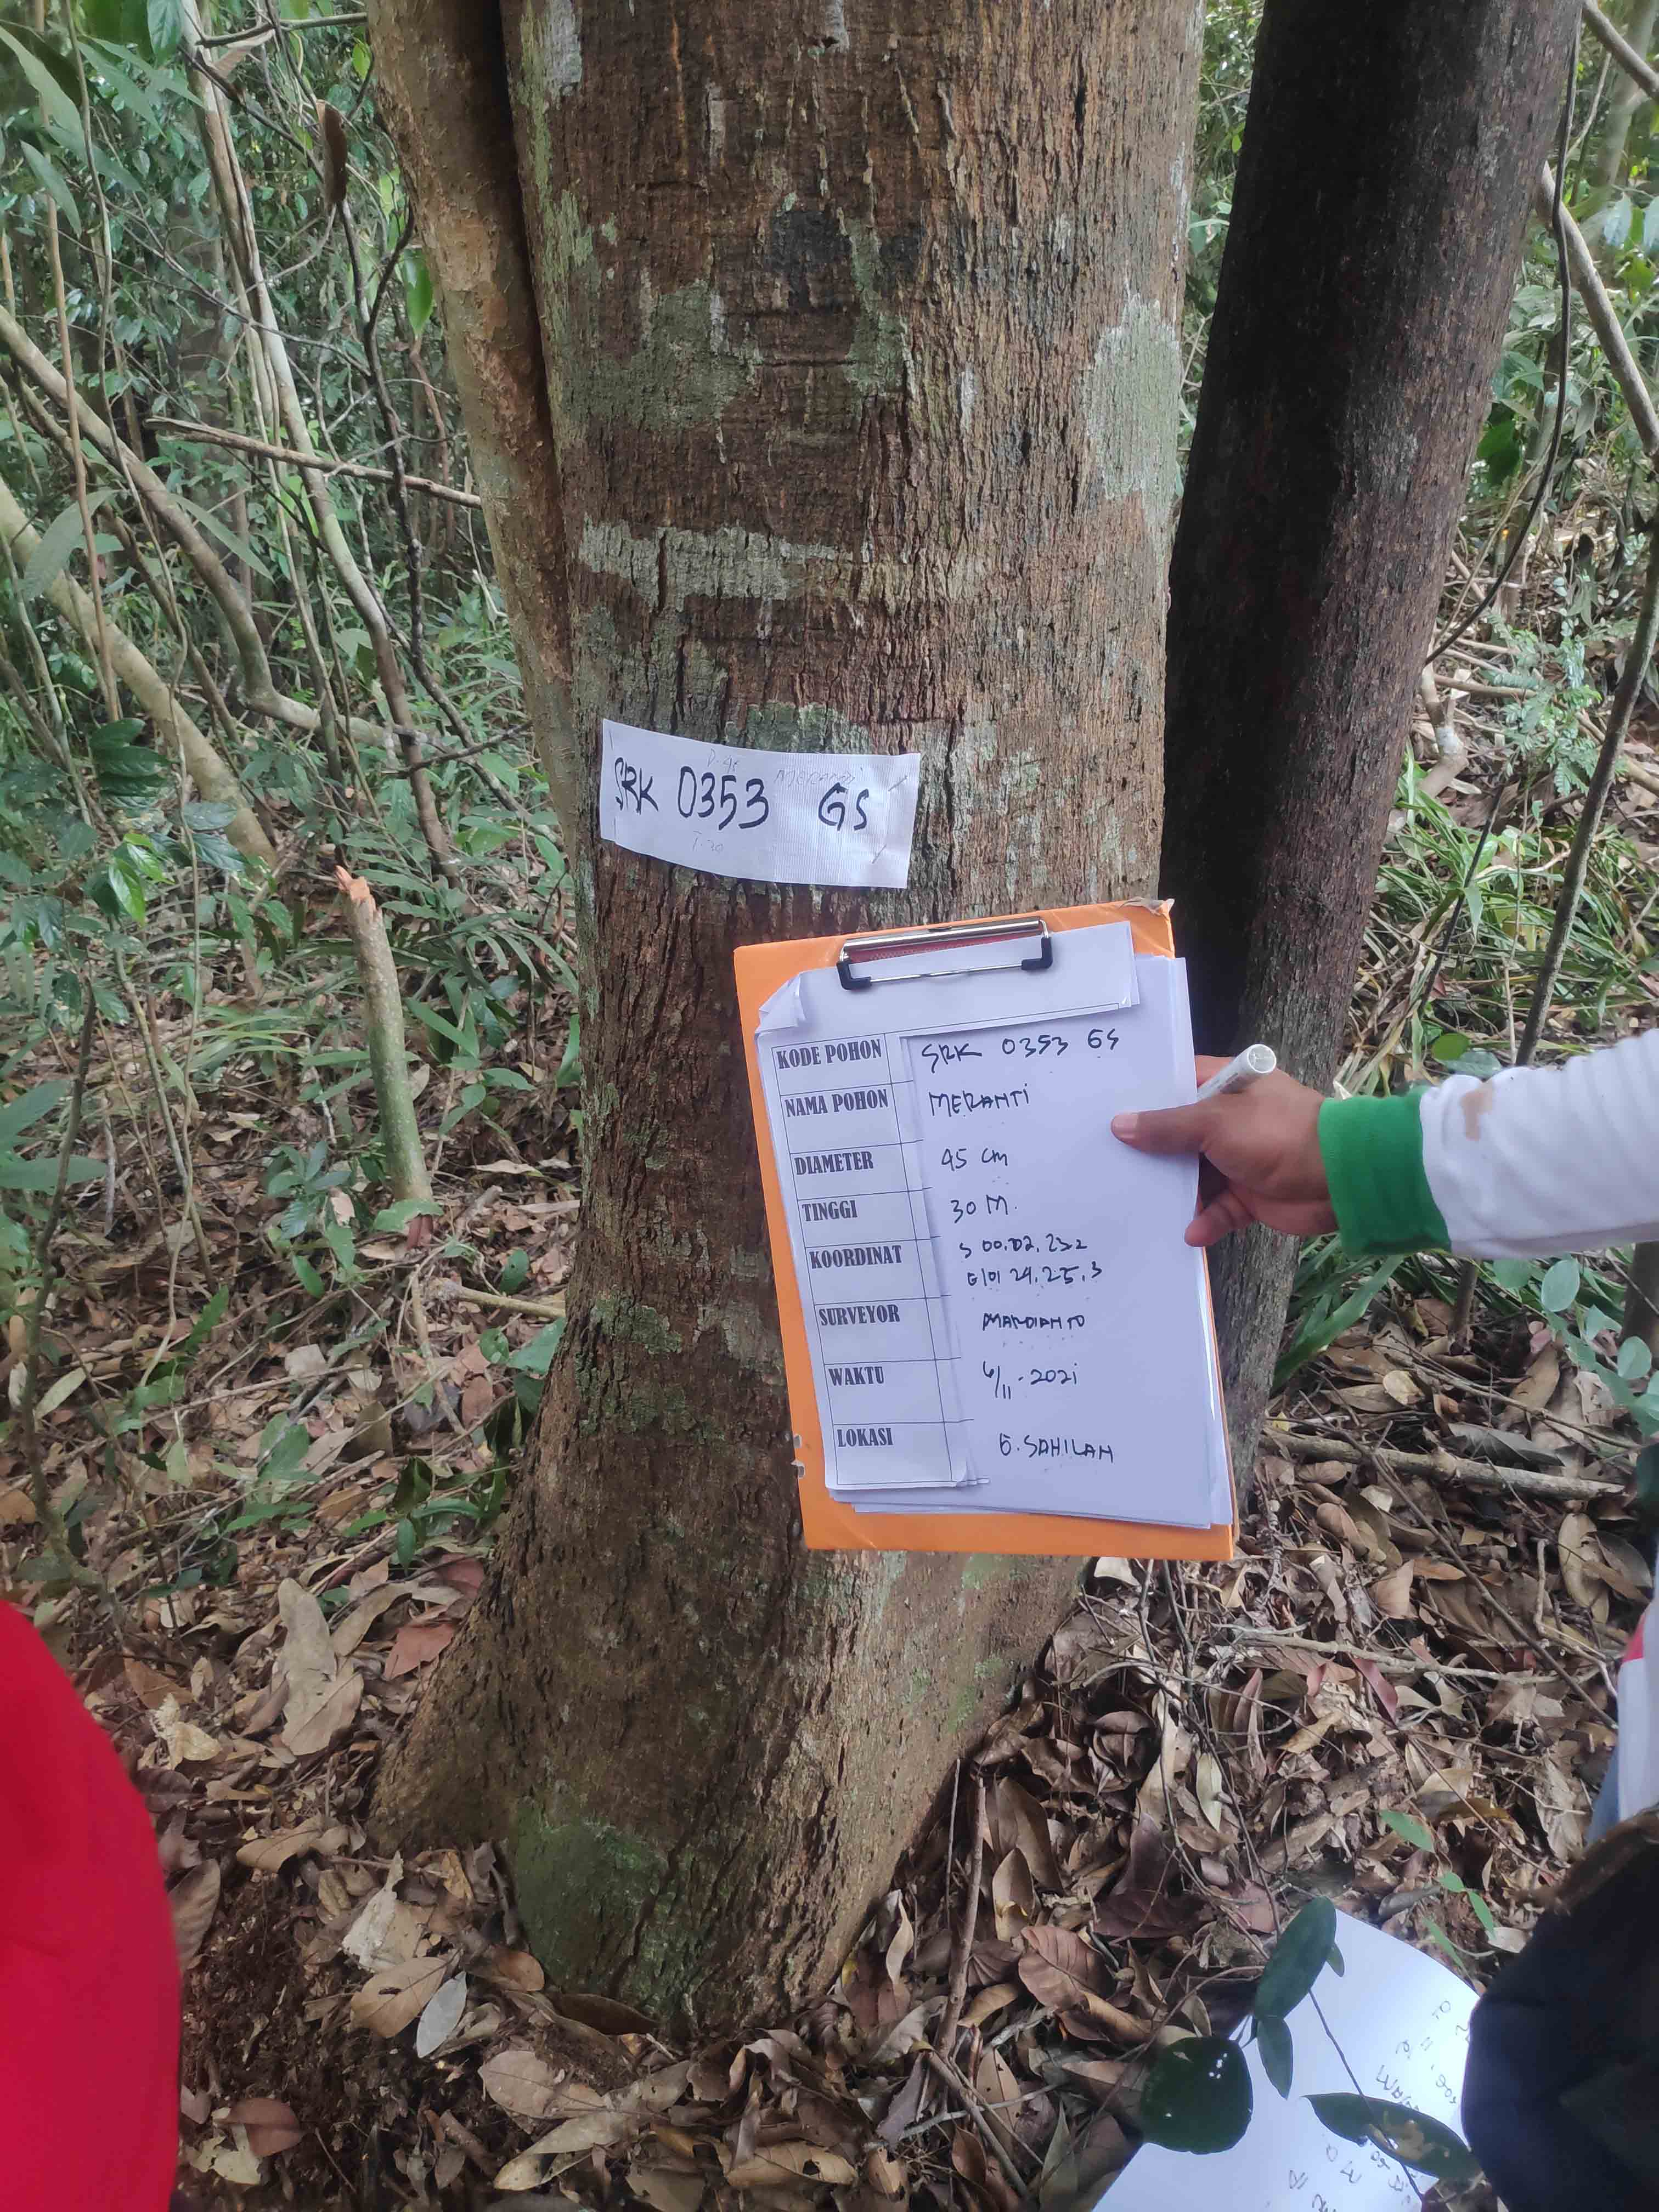 SRK 0353 GS
KODE POHON SRK 0353 GS
NAMA POHON MERANTI
DIAMETER 45 cm
TINGGI 30 M.
KOORDINAT S 00.02.232
E 101 24.25.3
SURVEYOR MARDIANTO
WAKTU 6/11-2021
LOKASI G. SAHILAH